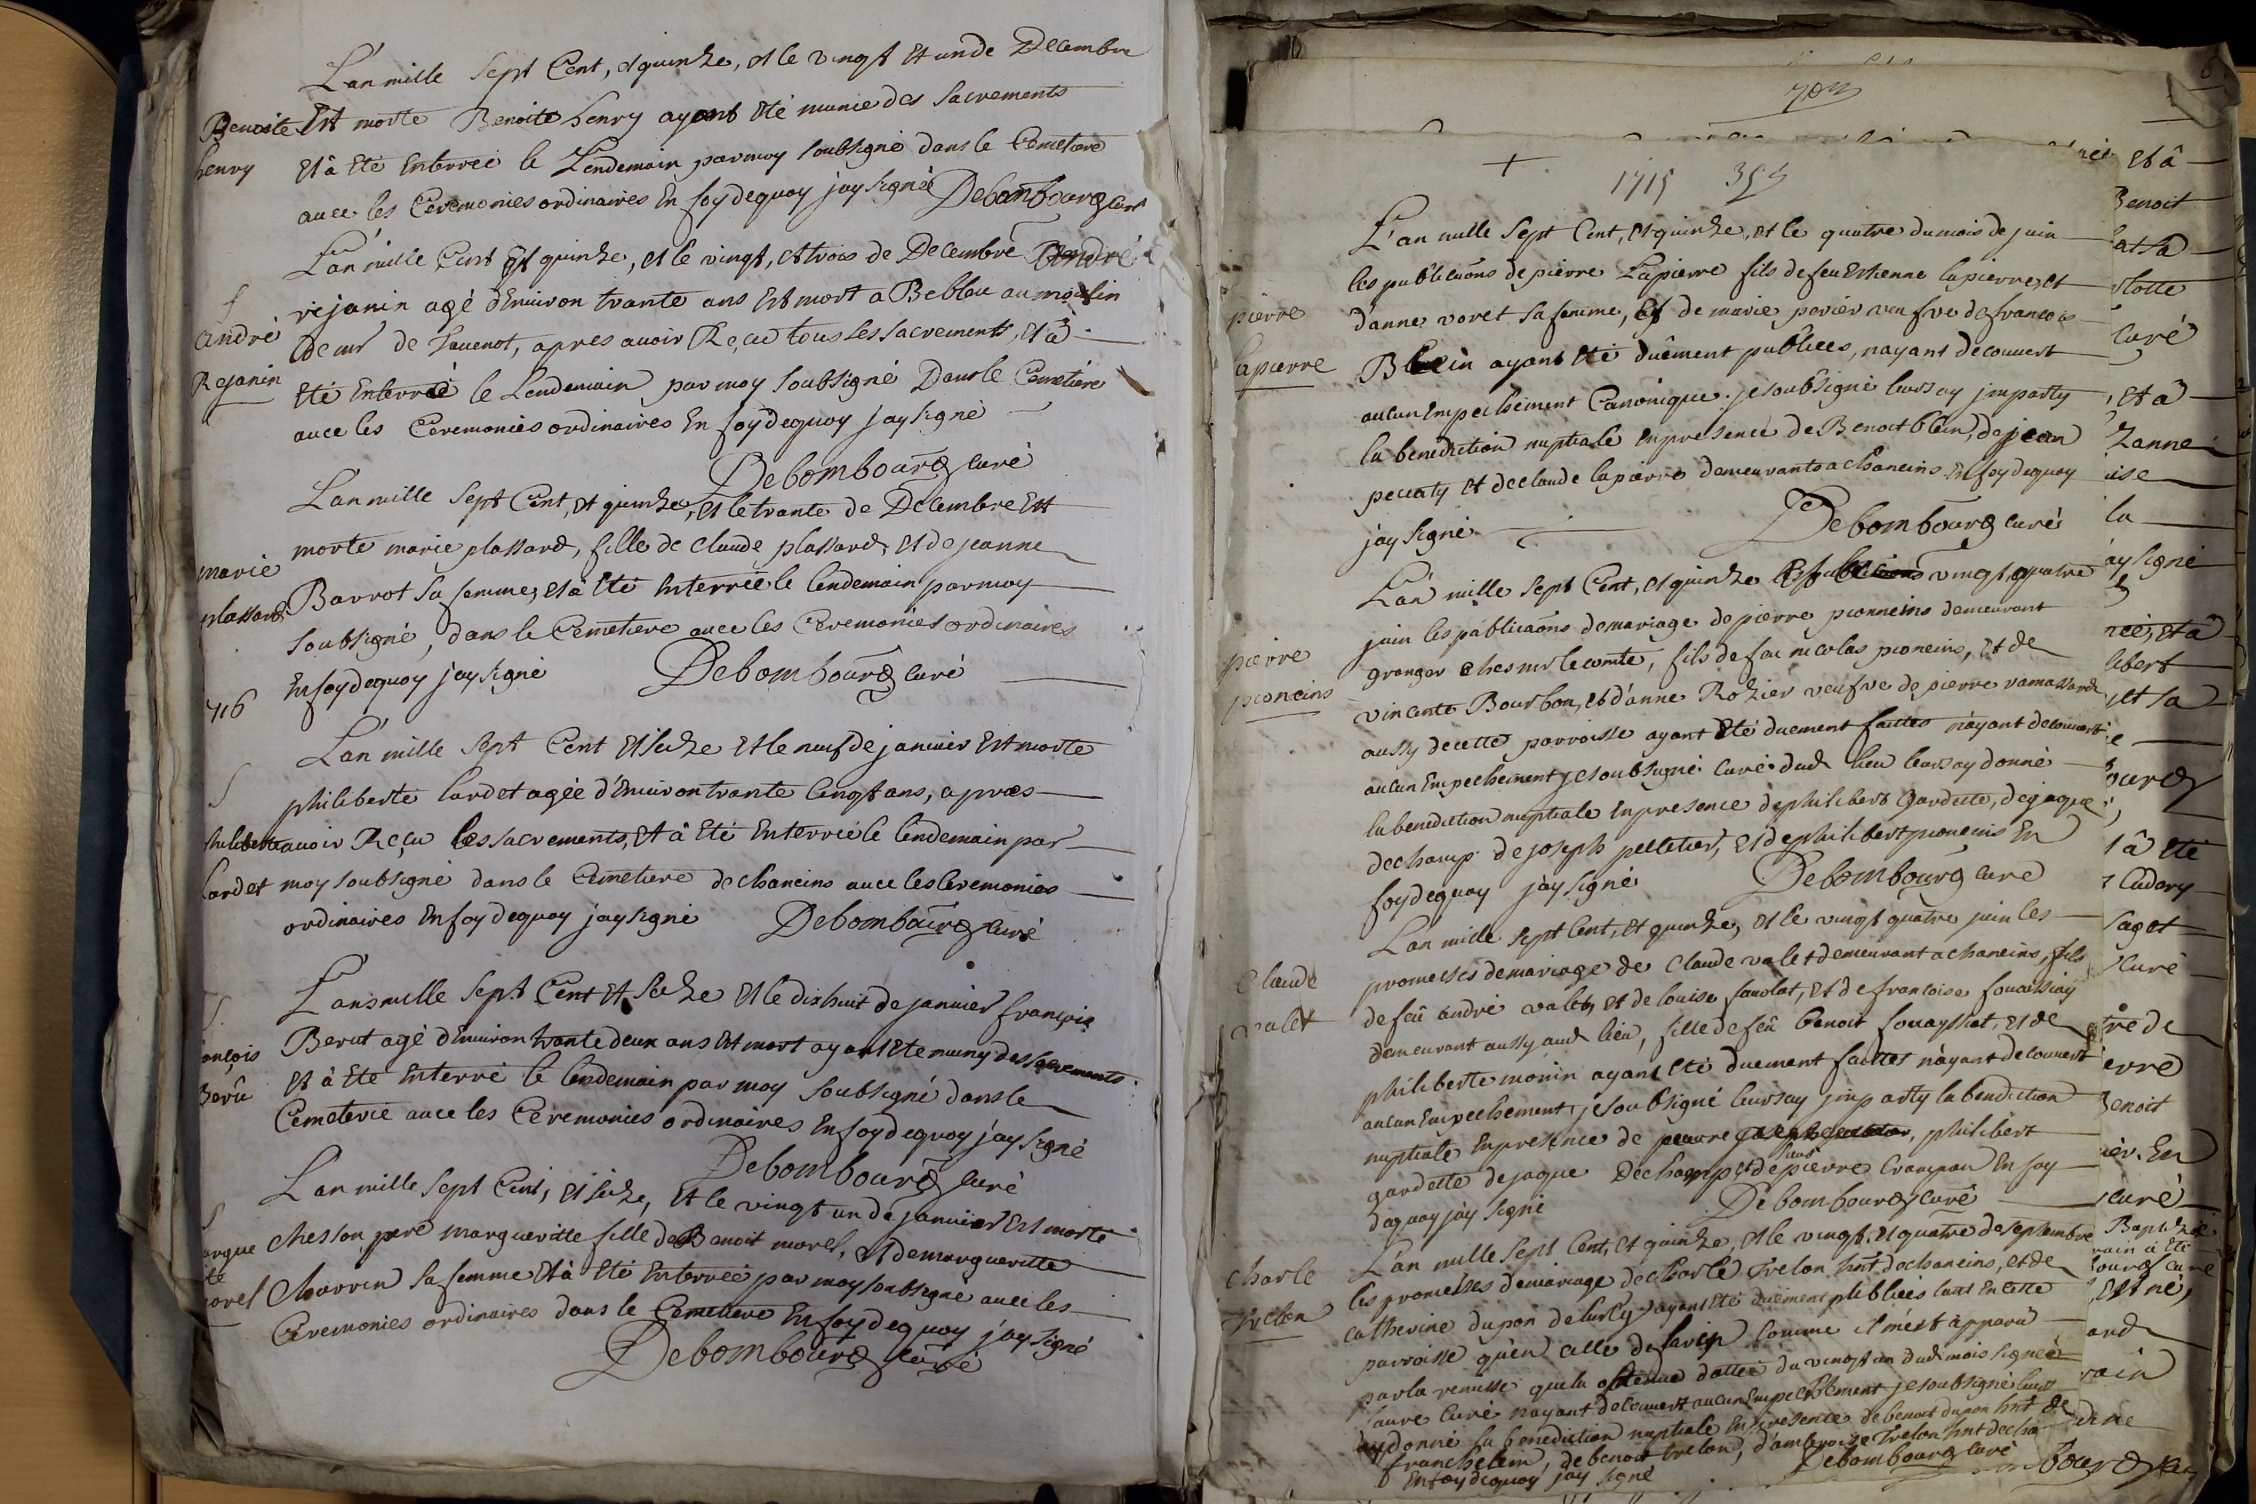 L'an mille sept Cent, et quinze, et le vingt et un de Decembre
Benoite Est morte Benoite henry ayant eté munie des sacrements
henry et â eté Enterreé le Lendemain par moy soubsigné dans le Cemetiere
avec les Ceremonies ordinaires En foy de quoy j'ay signé Debombourg curé
L'an mille Cent et quinze, et le vingt, et trois de Decembre André
rejanin agé d'Environ trante ans Est mort a Beblou au moulin
André
de mr de Tavenot, apres avoir Reçu tous les sacrements, et â
Rejanin
eté Enterré le Lendemain par moy soubsigné Dans le Cemetiere
avec les Ceremonies ordinaires En foy de quoy j'ay signé
Debombourg curé
L'an mille sept Cent, et quinze, et le trante de Decembre Est
morte marie plassard, fille de Claude plassard, et de jeanne
marie
Barrot sa femme, et â eté Enterreé le lendemain par moy
plassard
soubsigné, dans le Cemetiere avec les Ceremonies ordinaires
En foy de quoy j'ay signé Debombourg curé
716
L'an mille sept Cent et seize et le neuf de janvier Est morte
philiberte lardet ageé d'Environ trante Cinq ans, apres
philiberte avoir Reçu les sacrements, et â eté Enterreé le lendemain par
lardet moy soubsigné dans le Cemetiere de chaneins avec les Ceremonies
ordinaires En foy de quoy j'ay signé Debombourg curé
L'an mille sept Cent et seize et le dix huit de janvier françois
ançois Berut agé d'Environ trante deux ans Est mort ayant eté muny des sacrements
Berû et â eté Enterré le lendemain par moy soubsigné dans le
Cemeterie avec les Ceremonies ordinaires En foy de quoy j'ay signé
Debombourg curé
L'an mille sept Cent, et seize, et le vingt un de janvier Est morte
argue chez son pere margueritte fille de Benoit morel, et de margueritte
ite
orel Charvin sa femme et â eté Enterreé par moy soubsigné avec les
Ceremonies ordinaires dans le Cemetiere En foy de quoy j'ay signé
Debombourg curé
+
1715
L'an mille sept Cent, et quinze, et le quatre du mois de juin
les publicaôns de pierre Lapierre fils de feu Estienne lapierre, et
pierre
d'anne voret sa femme, et de marie perier veufve de francois
lapierre
Blein ayant eté duêment publiees, n'ayant decouvert
aucun Empeschement Canonique. je soubsigné leurs ay imparty
la benediction nuptiale En presence de Benoit blein, de jean
peccaty et de claude lapierre demeurants a chaneins En foy de quoy
j'ay signé Debombourg curé
L'an mille sept Cent, et quinze vingt quatre
juin les publicaôns de mariage de pierre pionneins demeurant
pierre
granger ches mr le comte, fils de feu nicolas pioneins, et de
pioneins
vincente Bourbon, et d'anne Rozier veufve de pierre ramassard
aussy de cette parroisse ayant eté duement faittes n'ayant decouvert
aucun Empechement je soubsigné curé dud lieu leurs ay donné
la benediction nuptiale En presence de philibert Gardette, de jaque
dechamp de joseph pelletier, et de philibert pioneins En
foy de quoy j'ay signé Debombourg curé
L'an mille sept Cent, et quinze, et le vingt quatre juin les
Claude
promesses de mariage de Claude valet demeurant a chaneins, fils
valet
de feû André valet, et de louise faulat, et de francoise
demeurant aussy aud lieu, fille de feû benoit et de
philiberte monin ayant eté duement faittes n'ayant decouvert
aucun Empechement, je soubsigné leurs ay imparty la benediction
nuptiale En presence de philibert
gardette de jaque Dechamp, et de pierre Crampan En foy
de quoy j'ay signé Debombourg curé
L'an mille sept Cent, et quinze, et le vingt, et quatre de septembre
charle
les promesses de mariage de charle Trelon hnt de chaneins, et de
Trelon
catherine dupon de lurcy ayant eté duement publieés tant En cette
parroisse qu'en celle de lurcy Comme il m'est apparû
par la remisse qu'il a obtenue dattée du vingt un dud mois signeé
faure curé n'ayant decouvert aucun Empechement je soubsigné leurs
ay donné la benediction nuptiale En presence de benoit dupon hnt de
franchelein, de benoit trelon, d'ambroise Trelon hnt de cha
En foy de quoy j'ay signé Debombourg curé
et â
Benoit
curé
, et â
Zanne
la
j'ay signé
libert
et sa
â eté
curé
Benoit
En
curé
Est né